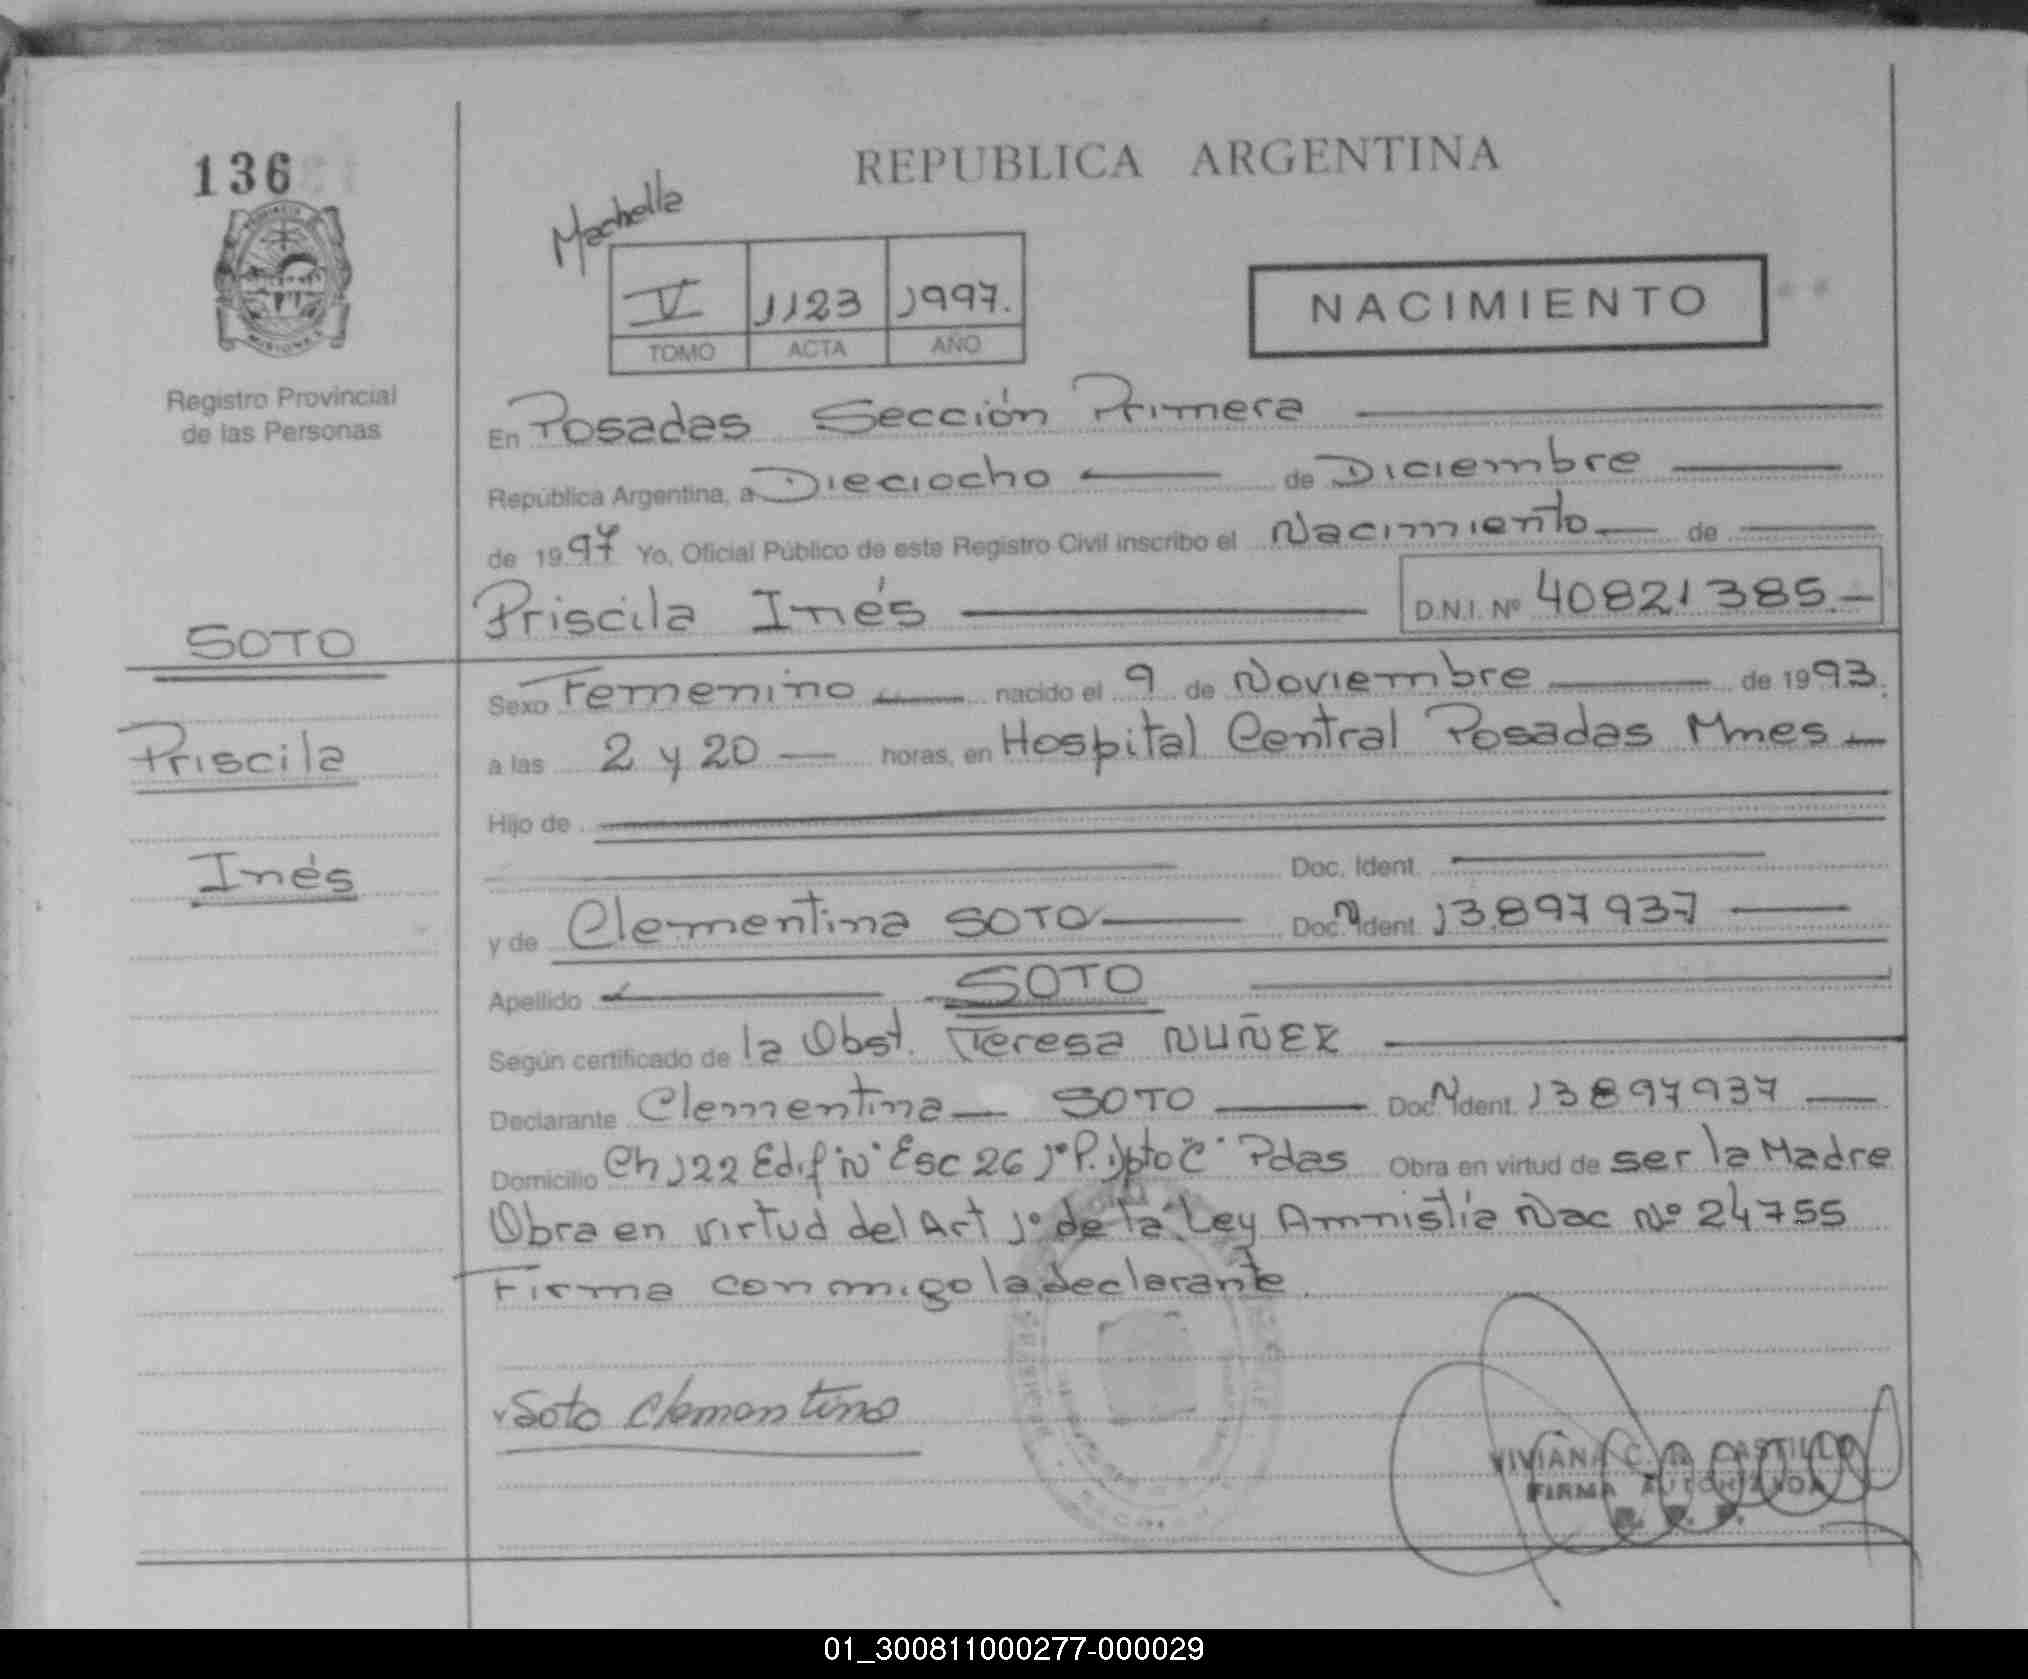 136
REPUBLICA ARGENTINA
Machella
V 1123 1997.
TOMO ACTA AÑO
NACIMIENTO
Registro Provincial
de las Personas
En Posadas Sección Primera
República Argentina, a Dieciocho de Diciembre
de 1997 Yo, Oficial Público de este Registro Civil inscribo el Nacimiento de
Priscila Inés D.N.I. Nº 40821385.-
SOTO
Priscila
Inés
Sexo Femenino nacido el 9 de Noviembre de 1993.
a las 2 y 20 horas, en Hospital Central Posadas Mnes
Hijo de
Doc. Ident.
y de Clementina SOTO Doc. N Ident. 13.897937
Apellido SOTO
Según certificado de la Obst. Teresa NUÑEZ
Declarante Clementina SOTO Doc. N Ident. 13897937
Domicilio Ch 122 Edif "N" Esc 26 1º P. Dpto "C" Pdas Obra en virtud de ser la Madre
Obra en virtud del Art 1º de la Ley Amnistía Nac Nº 24755
Firma conmigo la declarante.
Soto Clementina
VIVIANA C. CASTILLO
FIRMA AUTORIZADA
R. P. P.
01_300811000277-000029